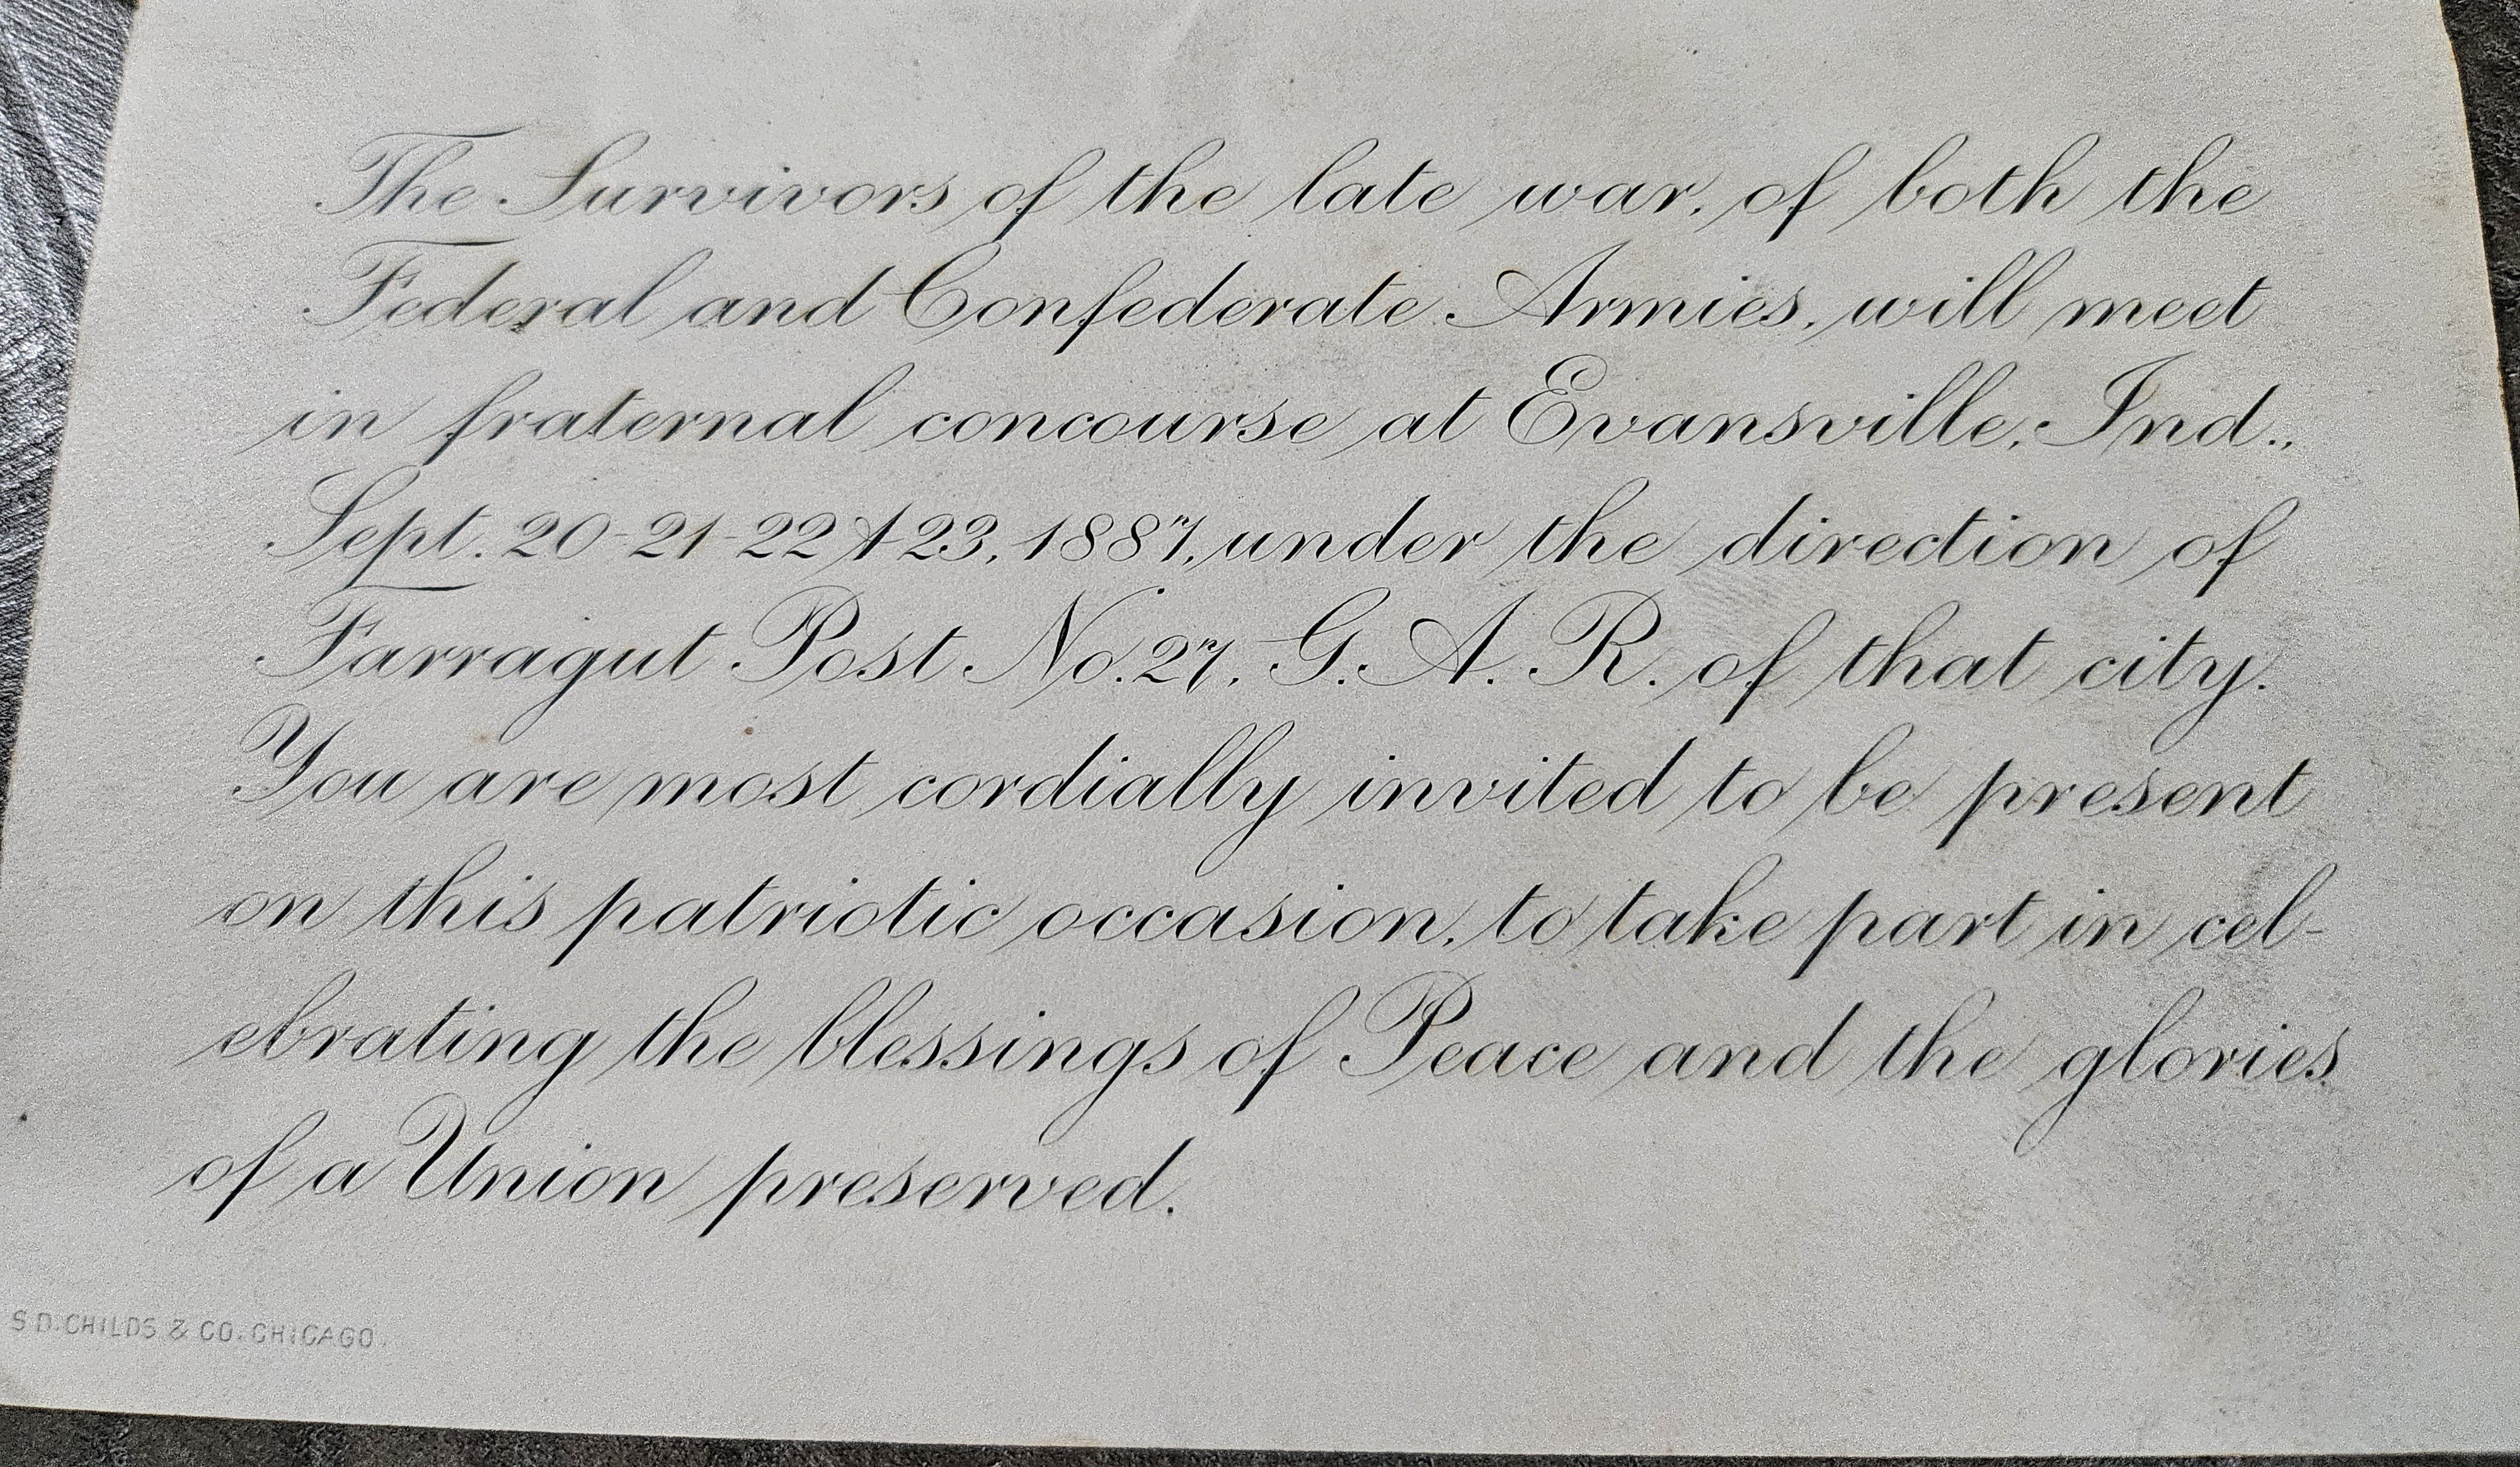 The Survivors of the late war, of both the
Federal and Confederate Armies, will meet
in fraternal concourse at Evansville, Ind.,
Sept. 20-21-22 & 23, 1887, under the direction of
Farragut Post No. 27, G. A. R. of that city.
You are most cordially invited to be present
on this patriotic occasion, to take part in cel-
ebrating the blessings of Peace and the glories
of a Union preserved.
S D. CHILDS & CO. CHICAGO.